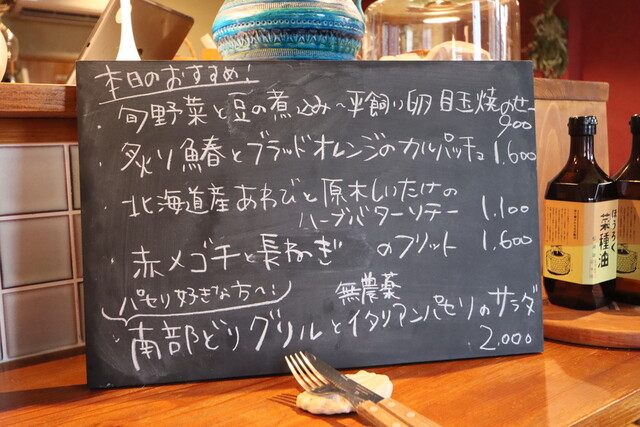 本日のおすすめ!
・旬野菜と豆の煮込み〜平飼い卵目玉焼のせ〜
900
・炙り鰆とブラッドオレンジのカルパッチョ 1.600
・北海道産あわびと原木しいたけの
ハーブバターソテー 1.100
・赤メゴチと長ねぎのフリット 1.600
パセリ好きな方へ!
無農薬
・南部どりグリルとイタリアンパセリのサラダ
2.000
ほうろく
菜種油
ほうろく
菜種油